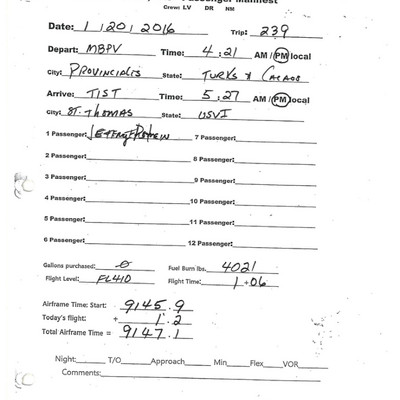 Passenger Manifest
Crew: LV DR NM
Date: 1 / 20 / 2016 Trip: 239
Depart: MBPV Time: 4:21 AM / PM local
City: PROVINCIALIS State: TURKS & CACAOS
Arrive: TIST Time: 5:27 AM / PM local
City: ST. THOMAS State: USVI
1 Passenger: 7 Passenger:
2 Passenger: 8 Passenger:
3 Passenger: 9 Passenger:
4 Passenger: 10 Passenger:
5 Passenger: 11 Passenger:
6 Passenger: 12 Passenger:
Gallons purchased: 0 Fuel Burn lbs. 4021
Flight Level: FL410 Flight Time: 1+06
Airframe Time: Start: 9145.9
Today's flight: + 1.2
Total Airframe Time = 9147.1
Night: T/O Approach Min Flex VOR
Comments: